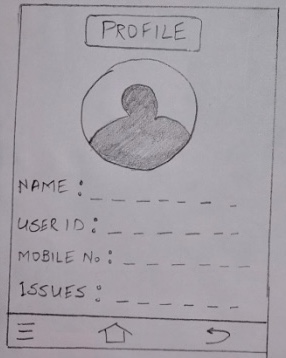 PROFILE
NAME : _ _ _ _ _ _
USER ID : _ _ _ _ _ _
MOBILE No : _ _ _ _ _ _
ISSUES : _ _ _ _ _ _